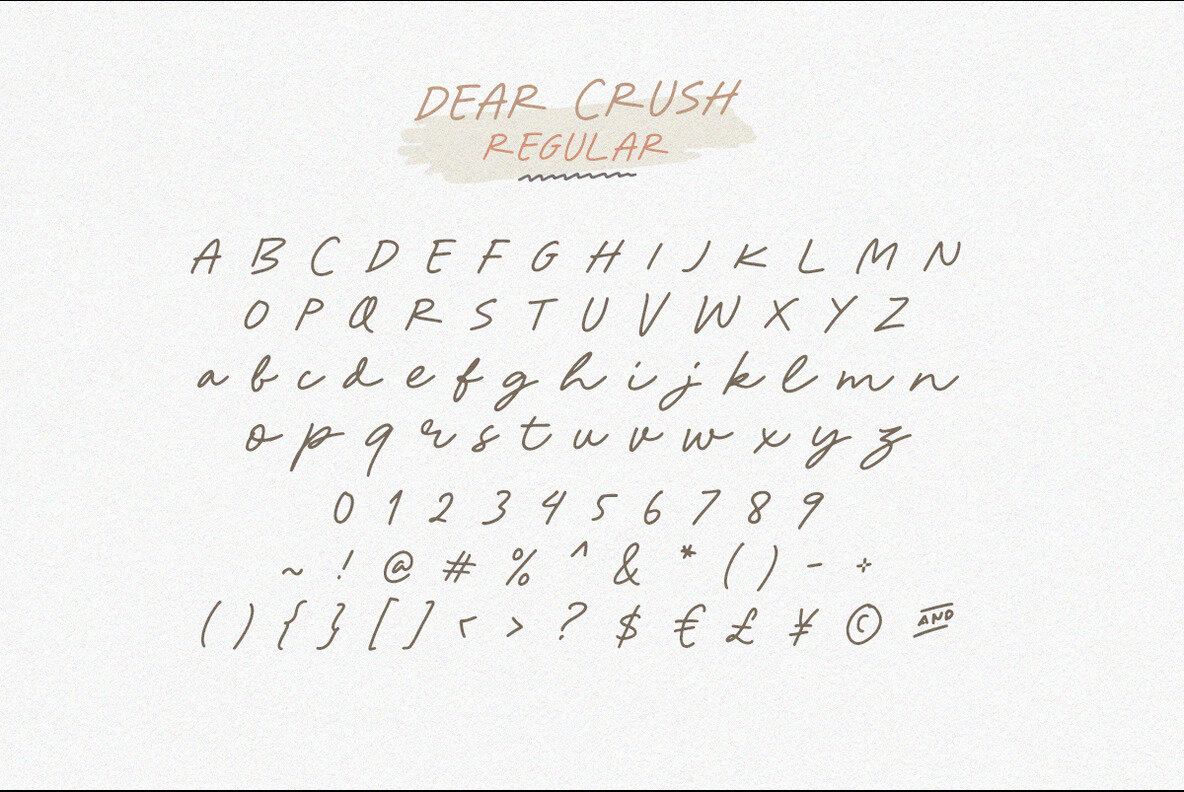 DEAR CRUSH
REGULAR
A B C D E F G H I J K L M N
O P Q R S T U V W X Y Z
a b c d e f g h i j k l m n
o p q r s t u v w x y z
0 1 2 3 4 5 6 7 8 9
~ ! @ # % ^ & * ( ) - +
( ) { } [ ] < > ? $ € £ ¥ © AND